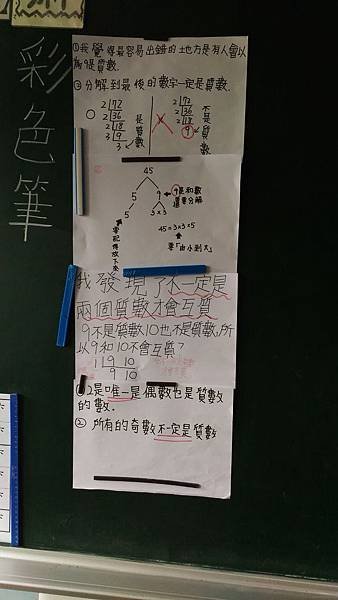 彩色筆
①我覺得最容易出錯的地方是有人會以
為9是質數.
②分解到最後的數字一定是質數.
2 72
2 36
2 18
3 9
3
是質數
2 72
2 36
2 18
9
不是質數
45
5 9
9是和數
還要分解
5 3×3
要記得放下來
45=3×3×5
要「由小到大」
我發現了不一定是
兩個質數才會互質
9不是質數10也不是質數,所
以9和10不會互質?
1 9 10
9 10
①2是唯一是偶數也是質數
的數.
② 所有的奇數不一定是質數